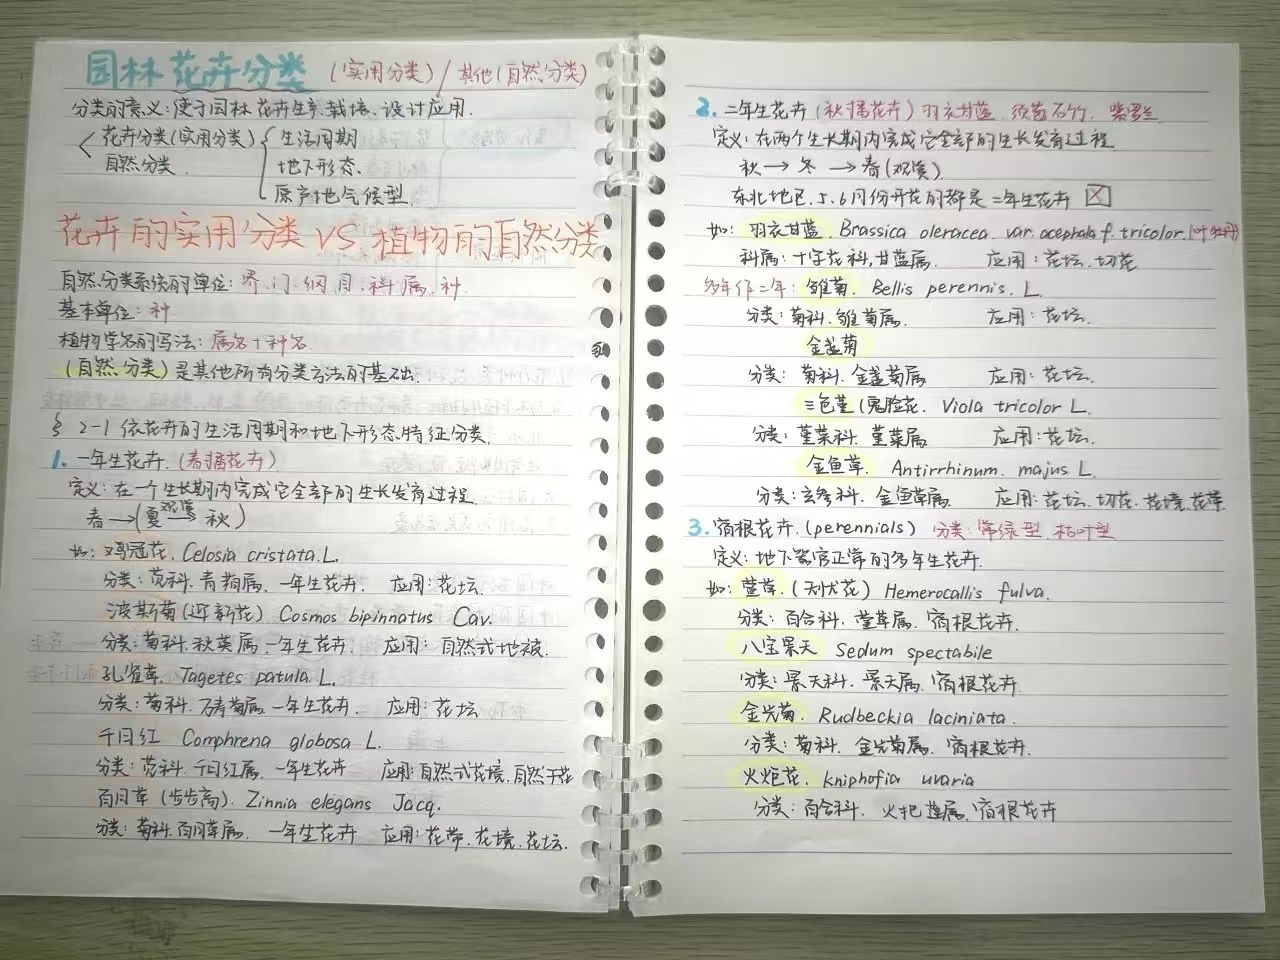 园林花卉分类 (实用分类) / 其他(自然分类)
分类的意义: 便于园林花卉生产、栽培、设计应用.
花卉分类(实用分类) { 生活周期
自然分类. 地下形态.
原产地气候型.
花卉的实用分类 VS 植物的自然分类
自然分类系统的单位: 界.门.纲.目.科.属.种.
基本单位: 种
植物学名的写法: 属名+种名
(自然分类)是其他所有分类方法的基础.
§ 2-1 依花卉的生活周期和地下形态特征分类.
1. 一年生花卉. (春播花卉)
定义: 在一个生长期内完成它全部的生长发育过程.
春 → (夏 观赏→ 秋)
如: 鸡冠花. Celosia cristata.L.
分类: 苋科. 青葙属. 一年生花卉. 应用: 花坛.
波斯菊 Cosmos bipinnatus Cav.
分类: 菊科. 秋英属. 一年生花卉. 应用: 自然式地被.
孔雀草. Tagetes patula L.
分类: 菊科. 万寿菊属. 一年生花卉. 应用: 花坛
千日红 Comphrena globosa L.
分类: 苋科. 千日红属. 一年生花卉 应用: 自然式花境.
百日草 (步步高). Zinnia elegans Jacq.
分类: 菊科. 百日草属. 一年生花卉 应用: 花带. 花境. 花坛.
2. 二年生花卉 (秋播花卉) 羽衣甘蓝. 须苞石竹. 紫罗兰
定义: 在两个生长期内完成它全部的生长发育过程.
秋 → 冬 → 春(观赏)
东北地区. 5.6月份开花的都是二年生花卉 ☒
如: 羽衣甘蓝. Brassica oleracea. var. acephala f. tricolor. (叶牡丹)
科属: 十字花科, 甘蓝属. 应用: 花坛. 切花
多年作二年: 雏菊. Bellis perennis. L.
分类: 菊科. 雏菊属. 应用: 花坛.
金盏菊
分类: 菊科. 金盏菊属 应用: 花坛.
三色堇 (鬼脸花. Viola tricolor L.
分类: 堇菜科. 堇菜属 应用: 花坛.
金鱼草. Antirrhinum. majus L.
分类: 玄参科. 金鱼草属. 应用: 花坛. 切花. 花境.
3. 宿根花卉. (perennials) 分类: 常绿型. 枯叶型
定义: 地下器官正常的多年生花卉.
如: 萱草. (忘忧花) Hemerocallis fulva.
分类: 百合科. 萱草属. 宿根花卉.
八宝景天 Sedum spectabile
分类: 景天科. 景天属. 宿根花卉.
金光菊. Rudbeckia laciniata.
分类: 菊科. 金光菊属. 宿根花卉.
火炬花. kniphofia uvaria
分类: 百合科. 火把莲属. 宿根花卉